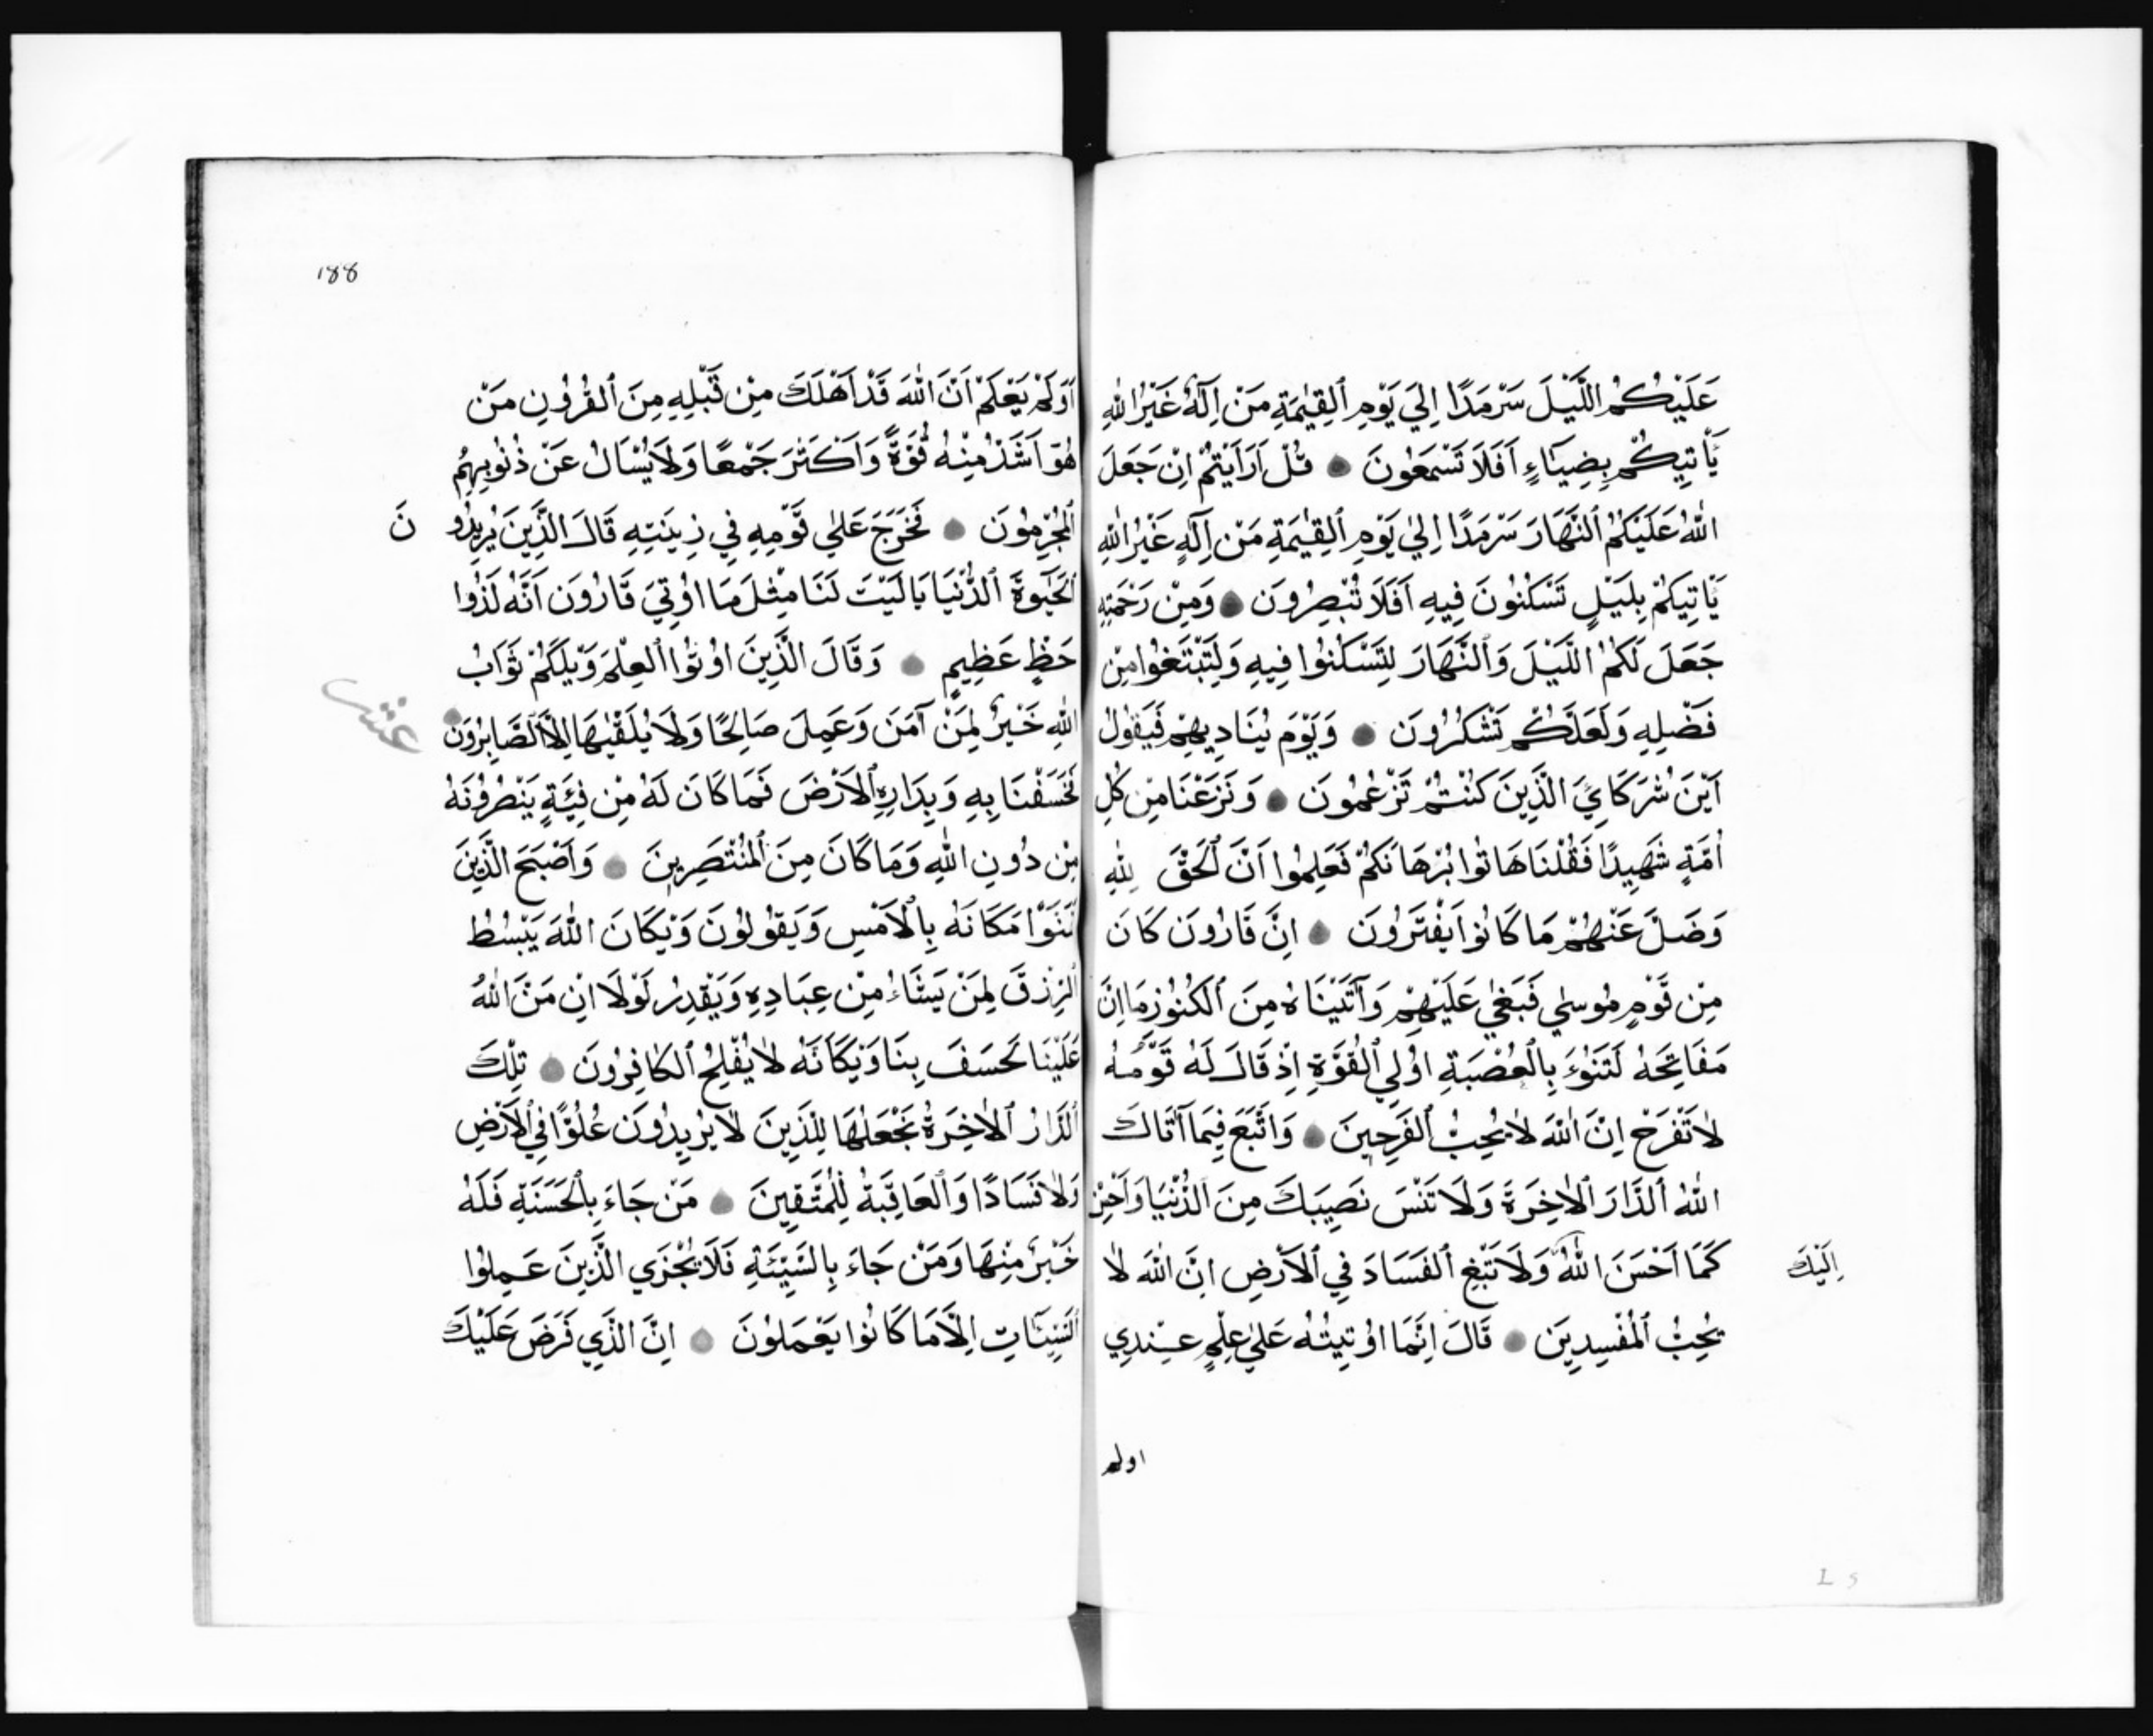 عَلَيْكُمُ اللَّيْلَ سَرْمَدًا اِلَيَ يَوْمِ الْقِيٰمَةِ مَنْ اِلٰهٌ غَيْرُ اللّٰهِ
يَاْتِيكُمْ بِضِيَاءٍ اَفَلَا تَسْمَعُونَ ● قُلْ اَرَاَيْتُمْ اِنْ جَعَلَ
اللّٰهُ عَلَيْكُمُ النَّهَارَ سَرْمَدًا اِلٰي يَوْمِ الْقِيٰمَةِ مَنْ اِلٰهٍ غَيْرُ اللّٰهِ
يَاْتِيكُمْ بِلَيْلٍ تَسْكُنُونَ فِيهِ اَفَلَا تُبْصِرُونَ ● وَمِنْ رَحْمَتِهِ
جَعَلَ لَكُمُ اللَّيْلَ وَالنَّهَارَ لِتَسْكُنُوا فِيهِ وَلِتَبْتَغُوا مِنْ
فَضْلِهِ وَلَعَلَّكُمْ تَشْكُرُونَ ● وَيَوْمَ يُنَادِيهِمْ فَيَقُولُ
اَيْنَ شُرَكَاءِيَ الَّذِينَ كُنْتُمْ تَزْعُمُونَ ● وَنَزَعْنَا مِنْ كُلِ
اُمَّةٍ شَهِيدًا فَقُلْنَا هَاتُوا بُرْهَانَكُمْ فَعَلِمُوا اَنَّ الْحَقَّ لِلّٰهِ
وَضَلَّ عَنْهُمْ مَا كَانُوا يَفْتَرُونَ ● اِنَّ قَارُونَ كَانَ
مِنْ قَوْمِ مُوسٰي فَبَغٰي عَلَيْهِمْ وَآتَيْنَاهُ مِنَ الْكُنُوزِ مَا اِنَّ
مَفَاتِحَهُ لَتَنُوءُ بِالْعُصْبَةِ اُولِي الْقُوَّةِ اِذْ قَالَ لَهُ قَوْمُهُ
لَا تَفْرَحْ اِنَّ اللّٰهَ لَا يُحِبُّ الْفَرِحِينَ ● وَاتَّبَعَ فِيمَا آتَاكَ
اللّٰهُ الدَّارَ الْاٰخِرَةَ وَلَا تَنْسَ نَصِيبَكَ مِنَ الدُّنْيَا وَاَحْسِنْ
كَمَا اَحْسَنَ اللّٰهُ وَلَا تَبْغِ الْفَسَادَ فِي الْاَرْضِ اِنَّ اللّٰهَ لَا
اِلَيْكَ
يُحِبُّ الْمُفْسِدِينَ ● قَالَ اِنَّمَا اُوتِيتُهُ عَلٰي عِلْمٍ عِنْدِي
اولم
188
اَوَلَمْ يَعْلَمْ اَنَّ اللّٰهَ قَدْ اَهْلَكَ مِنْ قَبْلِهِ مِنَ الْقُرُونِ مَنْ
هُوَ اَشَدُّ مِنْهُ قُوَّةً وَاَكْثَرَ جَمْعًا وَلَا يُسْاَلُ عَنْ ذُنُوبِهِمُ
الْمُجْرِمُونَ ● فَخَرَجَ عَلٰي قَوْمِهِ فِي زِينَتِهِ قَالَ الَّذِينَ يُرِيدُو نَ
الْحَيٰوةَ الدُّنْيَا يَالَيْتَ لَنَا مِثْلَ مَا اُوتِيَ قَارُونَ اَنَّهُ لَذُوا
حَظٍّ عَظِيمٍ ● وَقَالَ الَّذِينَ اُوتُوا الْعِلْمَ وَيْلَكُمْ ثَوَابُ
اللّٰهِ خَيْرٌ لِمَنْ آمَنَ وَعَمِلَ صَالِحًا وَلَا يُلَقّٰيهَا اِلَّا الصَّابِرُونَ ●
عشر
فَخَسَفْنَا بِهِ وَبِدَارِهِ الْاَرْضَ فَمَا كَانَ لَهُ مِنْ فِئَةٍ يَنْصُرُونَهُ
مِنْ دُونِ اللّٰهِ وَمَا كَانَ مِنَ الْمُنْتَصِرِينَ ● وَاَصْبَحَ الَّذِينَ
تَمَنَّوْا مَكَانَهُ بِالْاَمْسِ وَيَقُولُونَ وَيْكَاَنَّ اللّٰهَ يَبْسُطُ
الرِّزْقَ لِمَنْ يَشَاءُ مِنْ عِبَادِهِ وَيَقْدِرُ لَوْلَا اَنْ مَنَّ اللّٰهُ
عَلَيْنَا لَخَسَفَ بِنَا وَيْكَاَنَّهُ لَا يُفْلِحُ الْكَافِرُونَ ● تِلْكَ
الدَّارُ الْاٰخِرَةُ نَجْعَلُهَا لِلَّذِينَ لَا يُرِيدُونَ عُلُوًّا فِي الْاَرْضِ
وَلَا فَسَادًا وَالْعَاقِبَةُ لِلْمُتَّقِينَ ● مَنْ جَاءَ بِالْحَسَنَةِ فَلَهُ
خَيْرٌ مِنْهَا وَمَنْ جَاءَ بِالسَّيِّئَةِ فَلَا يُجْزَي الَّذِينَ عَمِلُوا
السَّيِّئَاتِ اِلَّا مَا كَانُوا يَعْمَلُونَ ● اِنَّ الَّذِي فَرَضَ عَلَيْكَ